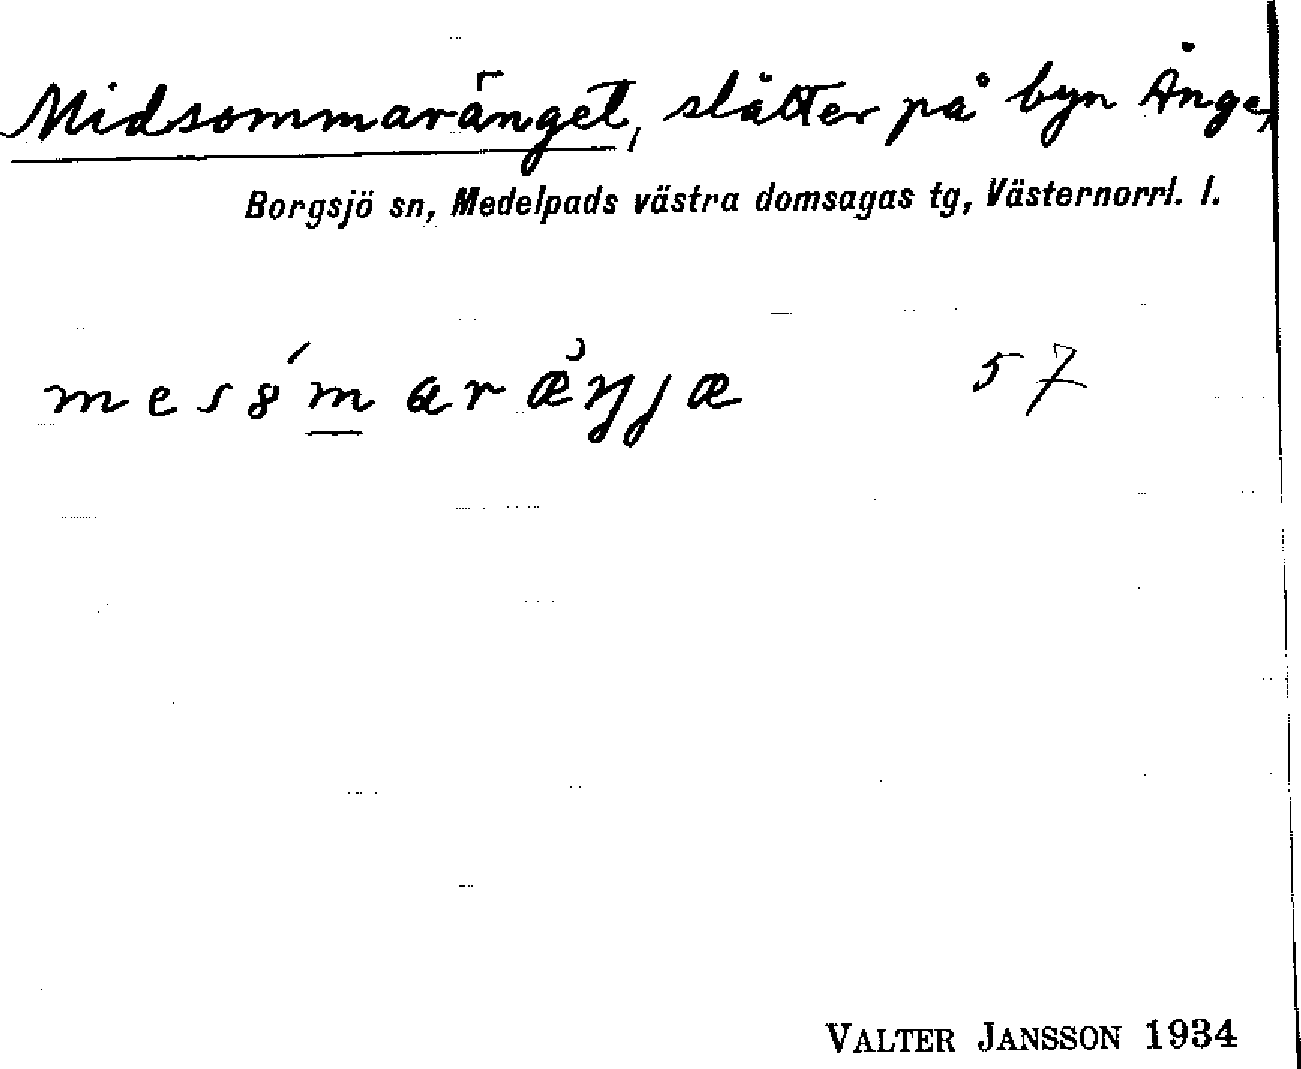 Midsommaränget, slåtter på byn Ånge,
Borgsjö sn, Medelpads västra domsagas tg, Västernorrl. l.
mes8́m̲aræ̉ŋjæ 57
VALTER JANSSON 1934